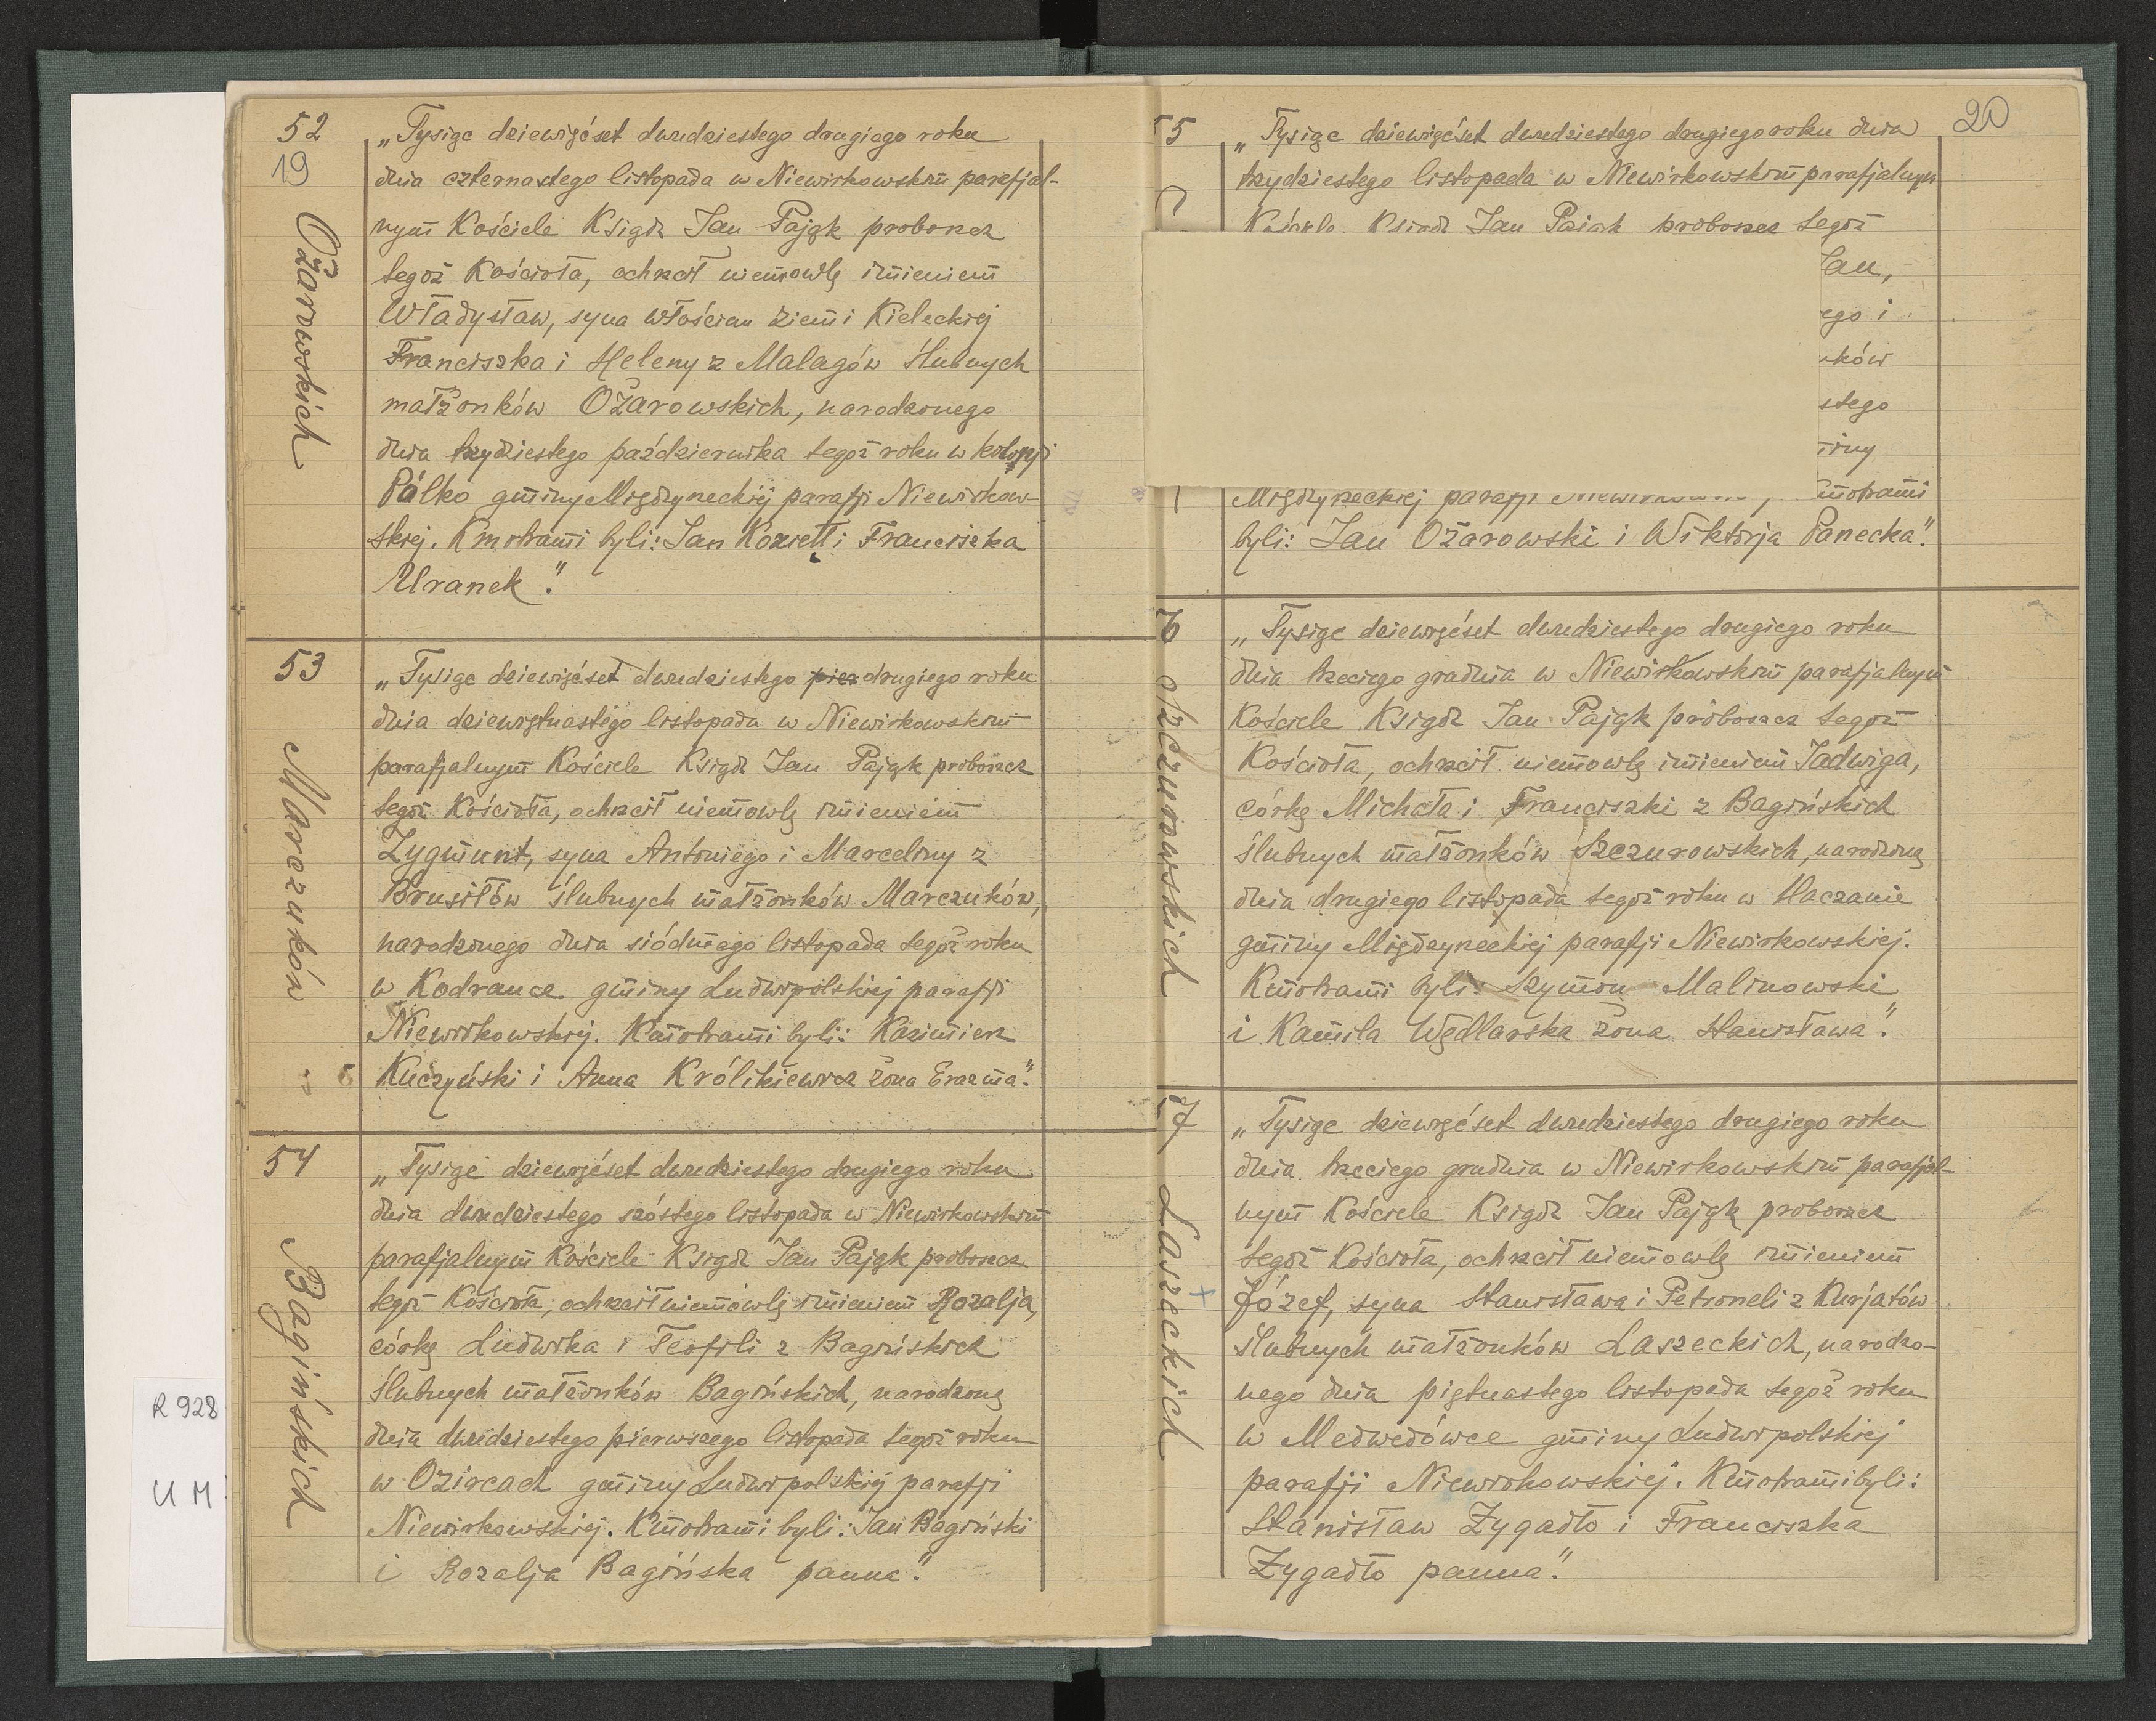 52
19
Ożarowskich
„Tysiąc dziewięćset dwudziestego drugiego roku
dnia czternastego listopada w Niewirkowskim parafjal-
nym Kościele Ksiądz Jan Pająk proboszcz
tegoż Kościoła, ochrzcił niemowlę imieniem
Władysław, syna włościan ziemi Kieleckiej
Franciszka i Heleny z Malagów ślubnych
małżonków Ożarowskich, narodzonego
dnia trzydziestego października tegoż roku w kolonji
Pálko gminy Międzyrzeckiej parafji Niewirkow-
skiej. Kmotrami byli: Jan Kozieł i Franciszka
Uranek".
53
Marczuków
„Tysiąc dziewięćset dwudziestego pier drugiego roku
dnia dziewiętnastego listopada w Niewirkowskim
parafjalnym Kościele Ksiądz Jan Pająk proboszcz
tegoż Kościoła, ochrzcił niemowlę imieniem
Zygmunt, syna Antoniego i Marceliny z
Brusiłów ślubnych małżonków Marczuków,
narodzonego dnia siódmego listopada tegoż roku
w Kodrance gminy Ludwipolskiej parafji
Niewirkowskiej. Kmotrami byli: Kazimierz
Kuczyński i Anna Królikiewicz żona Erazma".
54
Bagińskich
„Tysiąc dziewięćset dwudziestego drugiego roku
dnia dwudziestego szóstego listopada w Niewirkowskim
parafjalnym Kościele Ksiądz Jan Pająk proboszcz
tegoż Kościoła, ochrzcił niemowlę imieniem Rozalja,
córkę Ludwika i Teofili z Bagińskich
ślubnych małżonków Bagińskich, narodzoną
dnia dwudziestego pierwszego listopada tegoż roku
w Ozircach gminy Ludwipolskiej parafji
Niewirkowskiej. Kmotrami byli: Jan Bagiński
i Rozalja Bagińska panna".
R 928
U M
20
55
„Tysiąc dziewięćset dwudziestego drugiego roku dnia
trzydziestego listopada w Niewirkowskim parafjalnym
Kościele Ksiądz Jan Pająk proboszcz tegoż
Jan,
ego i
nków
stego
miny
Międzyrzeckiej parafji Kmotrami
byli: Jan Ożarowski i Wiktorja Panecka".
6
Szczurowskich
„Tysiąc dziewięćset dwudziestego drugiego roku
dnia trzeciego grudnia w Niewirkowskim parafjalnym
Kościele Ksiądz Jan Pająk proboszcz tegoż
Kościoła, ochrzcił niemowlę imieniem Jadwiga,
córkę Michała i Franciszki z Bagińskich
ślubnych małżonków Szczurowskich, narodzoną
dnia drugiego listopada tegoż roku w Haczanie
gminy Międzyrzeckiej parafji Niewirkowskiej.
Kmotrami byli: Szymon Malinowski
i Kamila Wędlarska żona Stanisława".
7
Laszeckich
„Tysiąc dziewięćset dwudziestego drugiego roku
dnia trzeciego grudnia w Niewirkowskim parafjal-
nym Kościele Ksiądz Jan Pająk proboszcz
tegoż Kościoła, ochrzcił niemowlę imieniem
Józef, syna Stanisława i Petroneli z Kurjatów
ślubnych małżonków Laszeckich, narodzo-
nego dnia piętnastego listopada tegoż roku
w Medwedówce gminy Ludwipolskiej
parafji Niewirkowskiej. Kmotrami byli:
Stanisław Zygadło i Franciszka
Zygadło panna".